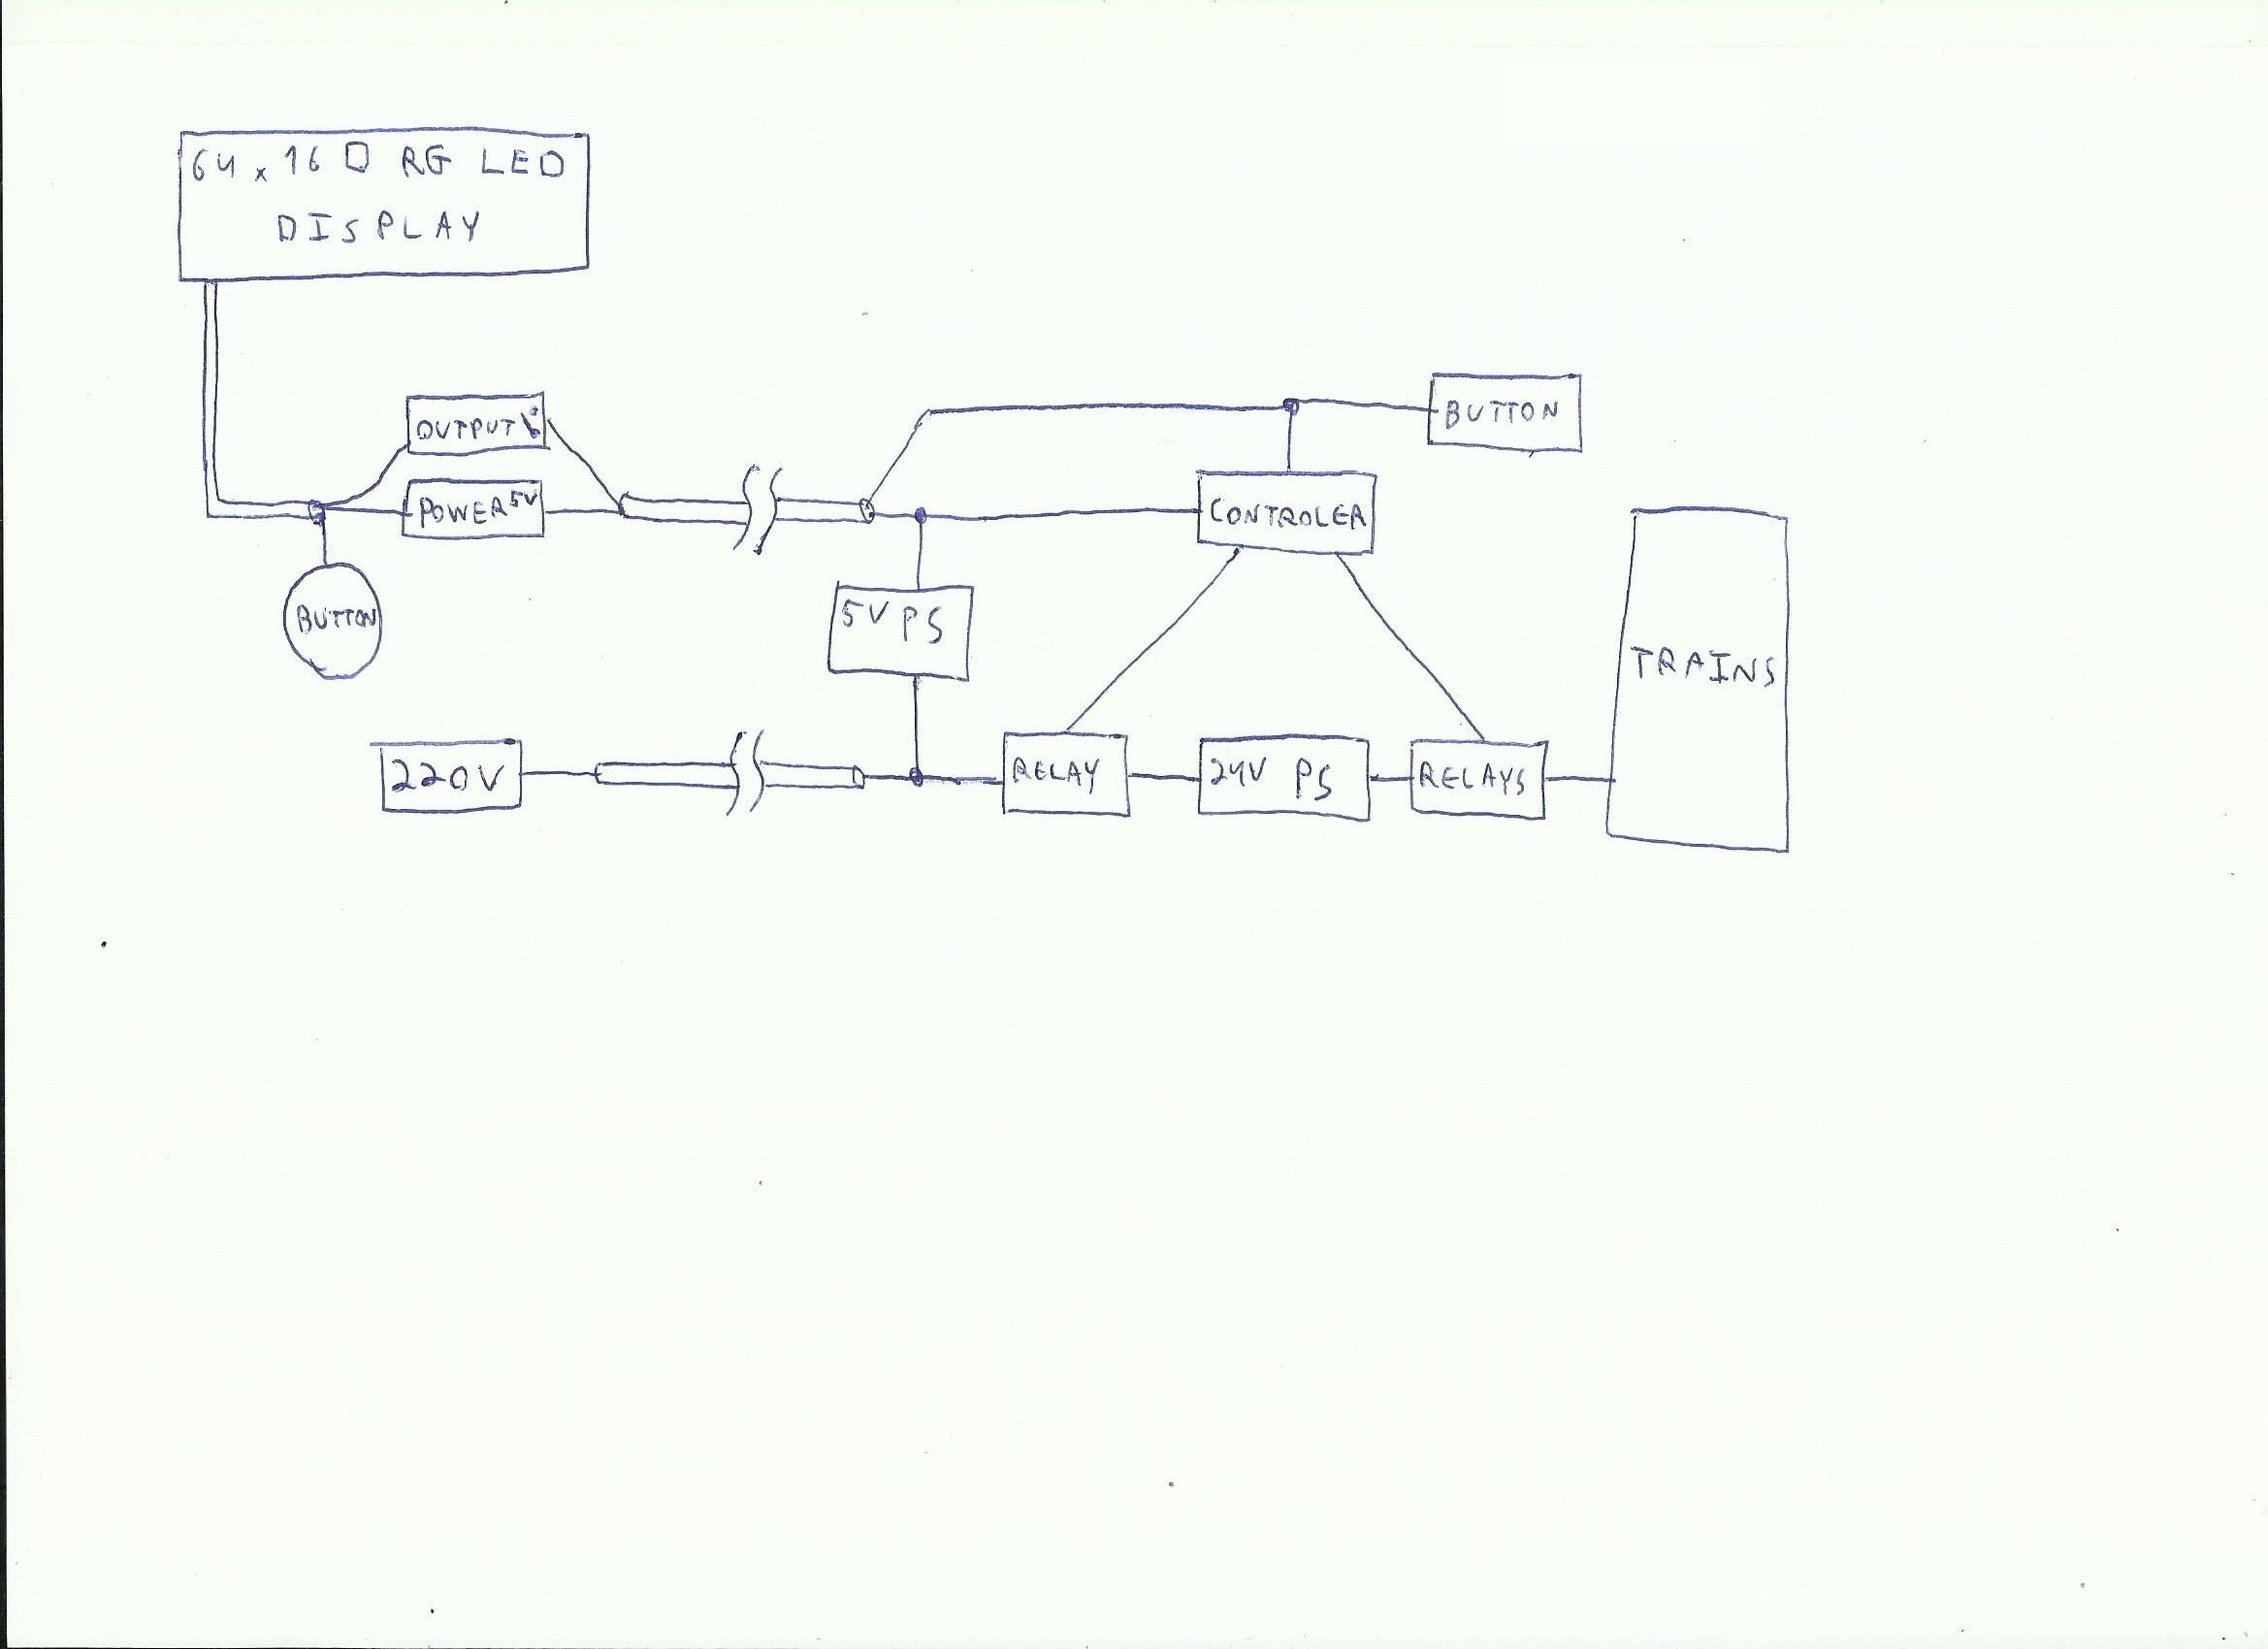 64 x 16 RG LED
DISPLAY
OUTPUT
POWER 5V
BUTTON
BUTTON
CONTROLER
5V PS
TRAINS
220V
RELAY
24V PS
RELAYS